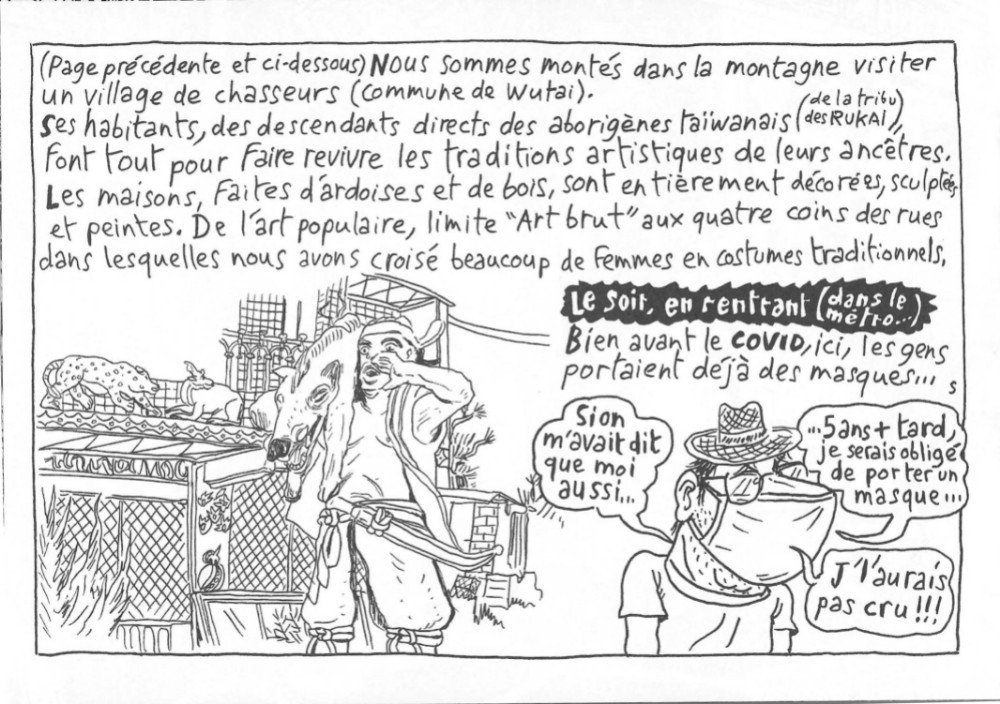 (Page précédente et ci-dessous) Nous sommes montés dans la montagne visiter
un village de chasseurs (commune de Wutai).
Ses habitants, des descendants directs des aborigènes taïwanais (de la tribu
des RUKAI),
font tout pour faire revivre les traditions artistiques de leurs ancêtres.
Les maisons, faites d'ardoises et de bois, sont entièrement décorées, sculptées
et peintes. De l'art populaire, limite "Art brut" aux quatre coins des rues
dans lesquelles nous avons croisé beaucoup de femmes en costumes traditionnels,
Le soir, en rentrant (dans le
métro...)
Bien avant le COVID, ici, les gens
portaient déjà des masques...
Si on
m'avait dit
que moi
aussi...
...5 ans + tard,
je serais obligé
de porter un
masque...
J'l'aurais
pas cru!!!